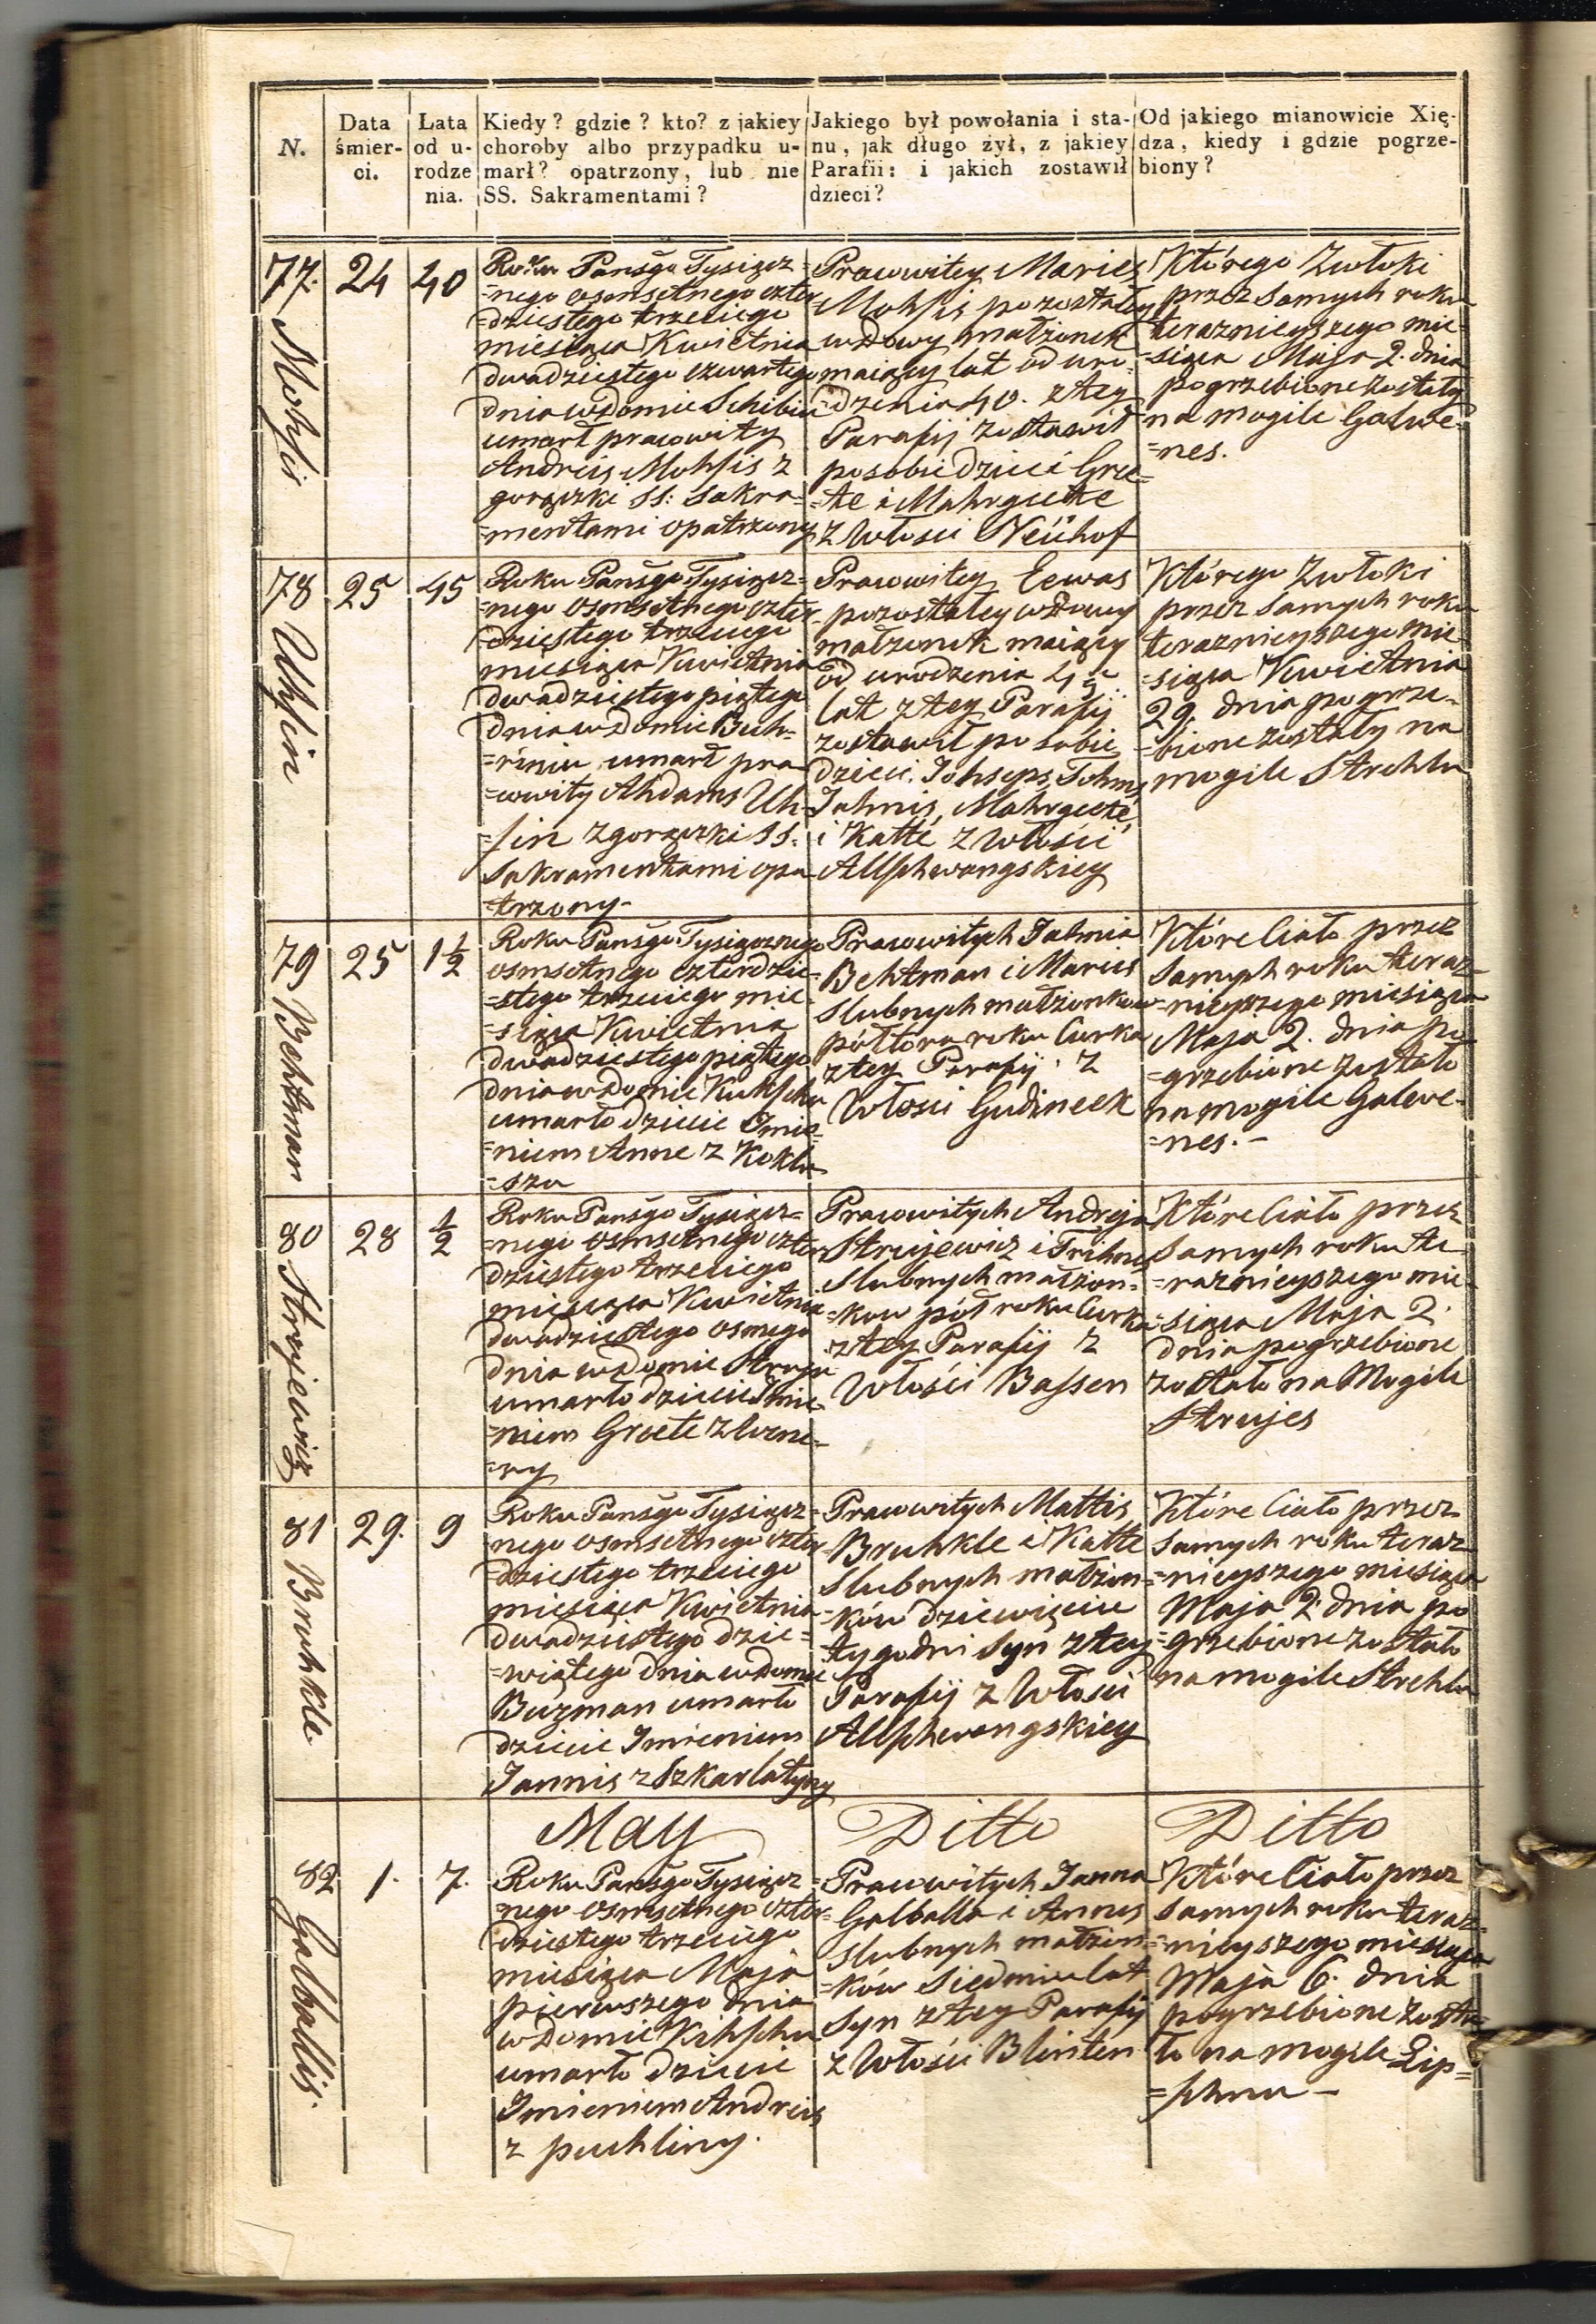 N.
Data śmier- ci.
Lata od u- rodze nia.
Kiedy? gdzie? kto? z jakiey
choroby albo przypadku u-
marł? opatrzony, lub nie
SS. Sakramentami?
Jakiego był powołania i sta-
nu, jak długo żył, z jakiey
Parafii: i jakich zostawił
dzieci?
Od jakiego mianowicie Xię-
dza, kiedy i gdzie pogrze-
biony?
77.
Mohsis
24
40
Roku Pańsgo Tysiącz=
=nego osmsetnego czter
=dziestego trzeciego
miesiąca Kwietnia
dwadziestego czwartego
dnia w domie Schibin
umarł pracowity
Andreis Mohsis z
gorączki SS: Sakra=
=mentami opatrzony
Pracowitey Maries
Mohsis pozostałey
wdowy małżonek
maiący lat od uro=
=dzenia 40. z tey
Parafij zostawił
posobie dzieci Gree=
=te i Mahrgeete
z Włosci Neühof
Którego Zwłoki
przez Samych roku
teraznieyszego mie=
=siąca Maja 2. dnia
pogrzebione zostały
na mogile Galwe=
=nes.
78
Uhsin
25
45
Roku Pańsgo Tysiącz=
=nego osmsetnego czter
dziestego trzeciego
miesiąca Kwietnia
dwadziestego piątego
dnia w domie Buh=
=riniu umarł pra
=cowity Ahdams Uh=
=sin z gorączki SS:
Sakramentami opa
=trzony-
Pracowitey Eewas
pozostałey wdowy
małzonek maiący
od urodzenia 45
lat z tey Parafij
zostawił po sobie
dzieci. Johseps, Tohms,
Jahnis, Mahrgeete,
i Katte z Włości
Allschwangskiey
Którego Zwłoki
przez Samych roku
teraznieyszego mie
=siąca Kwietnia
29. dnia pogrze=
=bione zostały na
mogile Strehlu
79
Behtman
25
1 1/2
Roku Pańsgo Tysiącznego
osmsetnego czterdzie=
=stego trzeciego mie
=siąca Kwietnia
dwadziestego piątego
dnia w domie Kukschu
umarło dziecie Imie=
=niem Anne z Koklu
=szu
Pracowitych Jahnia
Behtman i Maries
Slubnych małżonkow
półtora roku Curka
z tey Parafij z
Włosci Gudineek
Które Ciało przez
Samych roku teraz=
=nieyszego miesiąca
Maja 2. dnia po
=grzebione zostało
na mogile Galwe=
=nes.-
80
Strujewicz
28
1/2
Roku Pańsgo Tysiącz=
=nego osmsetnego czter
dziestego trzeciego
miesiąca Kwietnia
dwadziestego osmego
dnia w domie Struju
umarło dziecie Imie=
=niem Greete z
=ry
Pracowitych Andreja
Strujewicz i Trihnes
Slubnych małżon=
=kow pół roku Curka
z tey Parafij z
Włości Bassen
Które Ciało przez
Samych roku te
=raznieyszego mie=
=siąca Maja 2.
dnia pogrzebione
zostało na Mogile
Strujes
81
Bruhkle.
29.
9
Roku Pańsgo Tysiącz=
nego osmsetnego czter
=dziestego trzeciego
miesiąca Kwietnia
dwadziestego dzie=
=wiątego dnia w domie
Buzman umarło
dziecie Imieniem
Jannis z Szkarlatyny
Pracowitych Mattis
Bruhkle i Katte
Slubnych małżon=
=ków dziewięciu
tygodni Syn z tey
Parafij z Włosci
Allschwangskiey
Które Ciało przez
Samych roku teraz
=nieyszego miesiąca
Maja 2 dnia po
=grzebione zostało
na mogile Strehlu
May
Ditto
Ditto
82
Galballis.
1.
7.
Roku Pańsgo Tysiącz=
=nego osmsetnego czter=
dziestego trzeciego
miesiąca Maja
pierwszego dnia
w domie Kihschu
umarło dziecie
Imieniem Andreis
z puchliny.
Pracowitych Janna
Galballa i Annes
slubnych małżon=
=ków siedmiu lat
Syn z tey Parafij
z Włości Blinten
Które Ciało przez
Samych roku teraz=
=nieyszego miesiąca
Maja 6. dnia
pogrzebione zosta=
ło na mogile Zip=
=schnu -